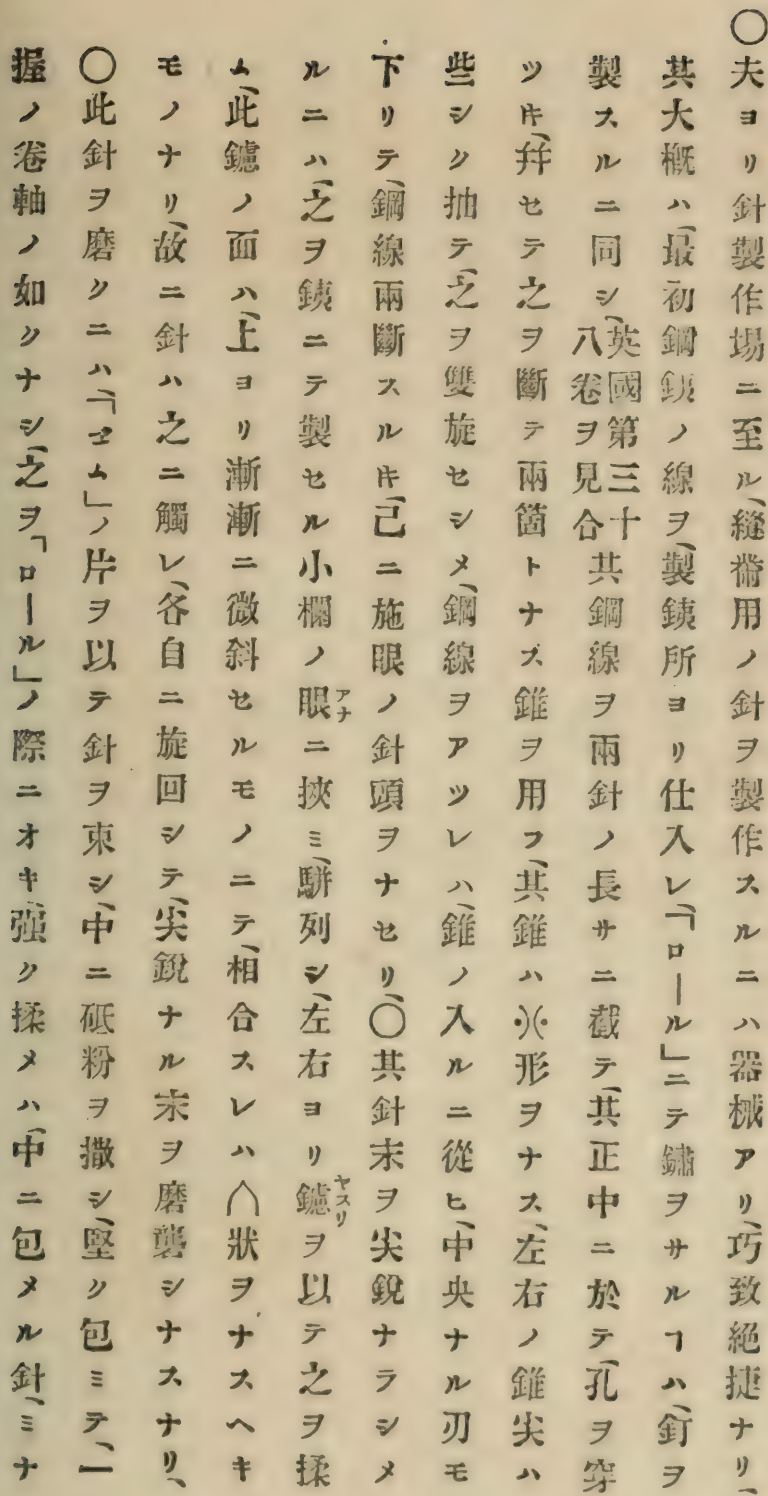 〇夫ヨリ針製作場ニ至ル、縫裳用ノ針ヲ製作スルニハ器械アリ、巧致絶捷ナリ、
其大概ハ、最初鋼鐵ノ線ヲ、製鐵所ヨリ仕入レ、「ロール」ニテ鏽ヲサルヿハ、釘ヲ
製スルニ同シ、英國第三十八卷ヲ見合 其鋼線ヲ兩針ノ長サニ截テ、其正中ニ於テ、孔ヲ穿
ツキ、幷セテ之ヲ斷テ兩箇トナス、錐ヲ用フ、其錐ハ※形ヲナス、左右ノ錐尖ハ
些シク抽テ、之ヲ雙旋セシメ、鋼線ヲアツレハ、錐ノ入ルニ從ヒ、中央ナル刃モ
下リテ、鋼線兩斷スルキ、己ニ施眼ノ針頭ヲナセリ、〇其針末ヲ尖銳ナラシメ
ルニハ、之ヲ銕ニテ製セル小欄ノ眼アナニ挾ミ、駢列シ、左右ヨリ鑢ヤスリヲ以テ之ヲ揉
ム、此鑢ノ面ハ、上ヨリ漸漸ニ微斜セルモノニテ、相合スレハ∧狀ヲナスヘキ
モノナリ、故ニ針ハ之ニ觸レ、各自ニ旋回シテ、尖銳ナル末ヲ磨礱シナスナリ、
〇此針ヲ磨クニハ、「ゴム」ノ片ヲ以テ針ヲ束シ、中ニ砥粉ヲ撒シ、堅ク包ミテ、一
握ノ卷軸ノ如クナシ、之ヲ「ロール」ノ際ニオキ、强ク揉メハ、中ニ包メル針、ミナ